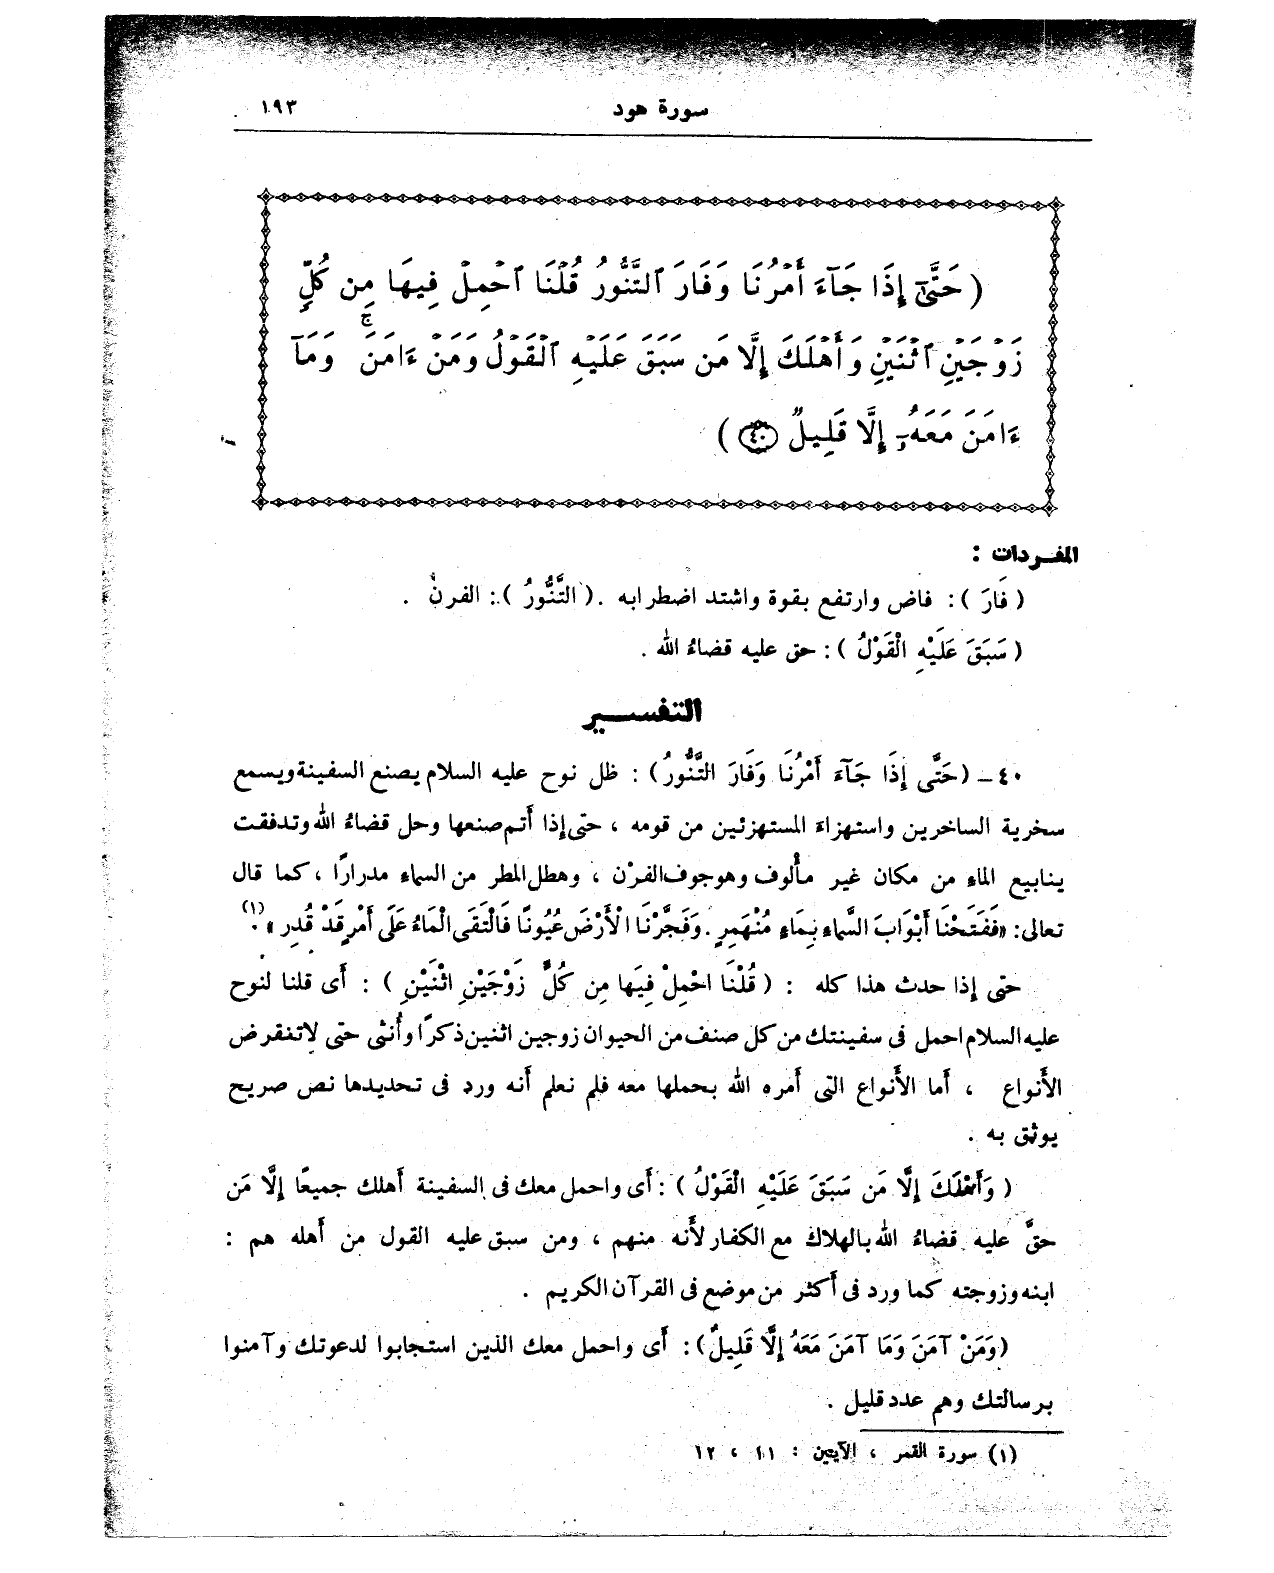 سورة هود
١٩٣
( حَتَّىٰٓ إِذَا جَآءَ أَمْرُنَا وَفَارَ ٱلتَّنُّورُ قُلْنَا ٱحْمِلْ فِيهَا مِن كُلٍّ
زَوْجَيْنِ ٱثْنَيْنِ وَأَهْلَكَ إِلَّا مَن سَبَقَ عَلَيْهِ ٱلْقَوْلُ وَمَنْ ءَامَنَ ۚ وَمَآ
ءَامَنَ مَعَهُۥٓ إِلَّا قَلِيلٌ ٤٠ )
المفردات :
( فَارَ ) : فاض وارتفع بقوة واشتد اضطرابه . ( التَّنُّورُ ) : الفرن .
( سَبَقَ عَلَيْهِ الْقَوْلُ ) : حق عليه قضاءُ الله .
التفسير
٤٠ – ( حَتَّى إِذَا جَآءَ أَمْرُنَا وَفَارَ التَّنُّورُ ) : ظل نوح عليه السلام يصنع السفينة ويسمع
سخرية الساخرين واستهزاءَ المستهزئين من قومه ، حتى إذا أَتم صنعها وحل قضاءُ الله وتدفقت
ينابيع الماءِ من مكان غير مأْلوف وهو جوف الفرْن ، وهطل المطر من السماءِ مدرارًا ، كما قال
تعالى : « فَفَتَحْنَا أَبْوَابَ السَّمَاءِ بِمَاءٍ مُنْهَمِرٍ . وَفَجَّرْنَا الْأَرْضَ عُيُونًا فَالْتَقَى الْمَاءُ عَلَى أَمْرٍ قَدْ قُدِر » . (١)
حتى إذا حدث هذا كله : ( قُلْنَا احْمِلْ فِيهَا مِن كُلٍّ زَوْجَيْنِ اثْنَيْنِ ) : أَى قلنا لنوح
عليه السلام احمل فى سفينتك من كل صنف من الحيوان زوجين اثنين ذكرًا وأُنثى حتى لا تنقرض
الأَنواع ، أَما الأَنواع التى أَمره الله بحملها معه فلم نعلم أَنه ورد فى تحديدها نص صريح
يوثق به .
( وَأَهْلَكَ إِلَّا مَن سَبَقَ عَلَيْهِ الْقَوْلُ ) : أَى واحمل معك فى السفينة أَهلك جميعًا إِلَّا مَن
حقَّ عليه قضاءُ الله بالهلاك مع الكفار لأَنه منهم ، ومن سبق عليه القول من أَهله هم :
ابنه وزوجته كما ورد فى أَكثر من موضع فى القرآن الكريم .
( وَمَنْ آمَنَ وَمَا آمَنَ مَعَهُ إِلَّا قَلِيلٌ ) : أَى واحمل معك الذين استجابوا لدعوتك وآمنوا
برسالتك وهم عدد قليل .
(١) سورة القمر ، الآيتين : ١١ ، ١٢